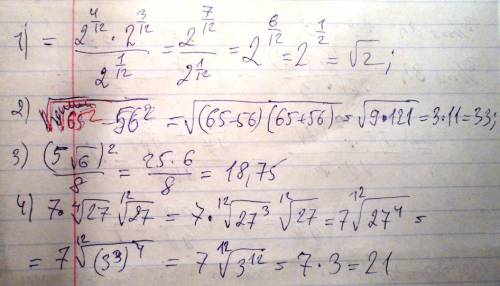 1) = (2^(4/12) · 2^(3/12)) / 2^(1/12) = 2^(7/12) / 2^(1/12) = 2^(6/12) = 2^(1/2) = √2;
2) √(65² - 56²) = √((65-56)(65+56)) = √(9·121) = 3·11 = 33;
3) (5√6)² / 8 = 25·6 / 8 = 18,75
4) 7·⁴√27 ¹²√27 = 7·¹²√(27³) ¹²√27 = 7 ¹²√(27⁴) =
= 7 ¹²√((3³)⁴) = 7 ¹²√(3¹²) = 7·3 = 21